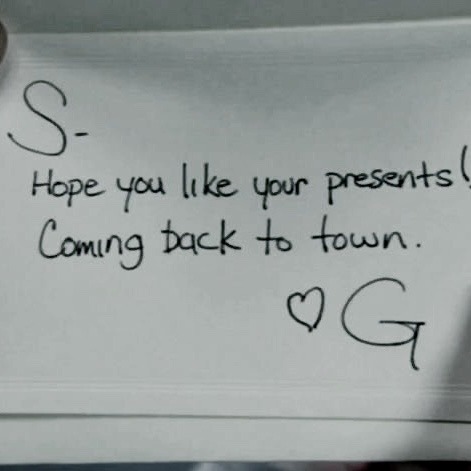 S-
Hope you like your presents!
Coming back to town.
♡ G